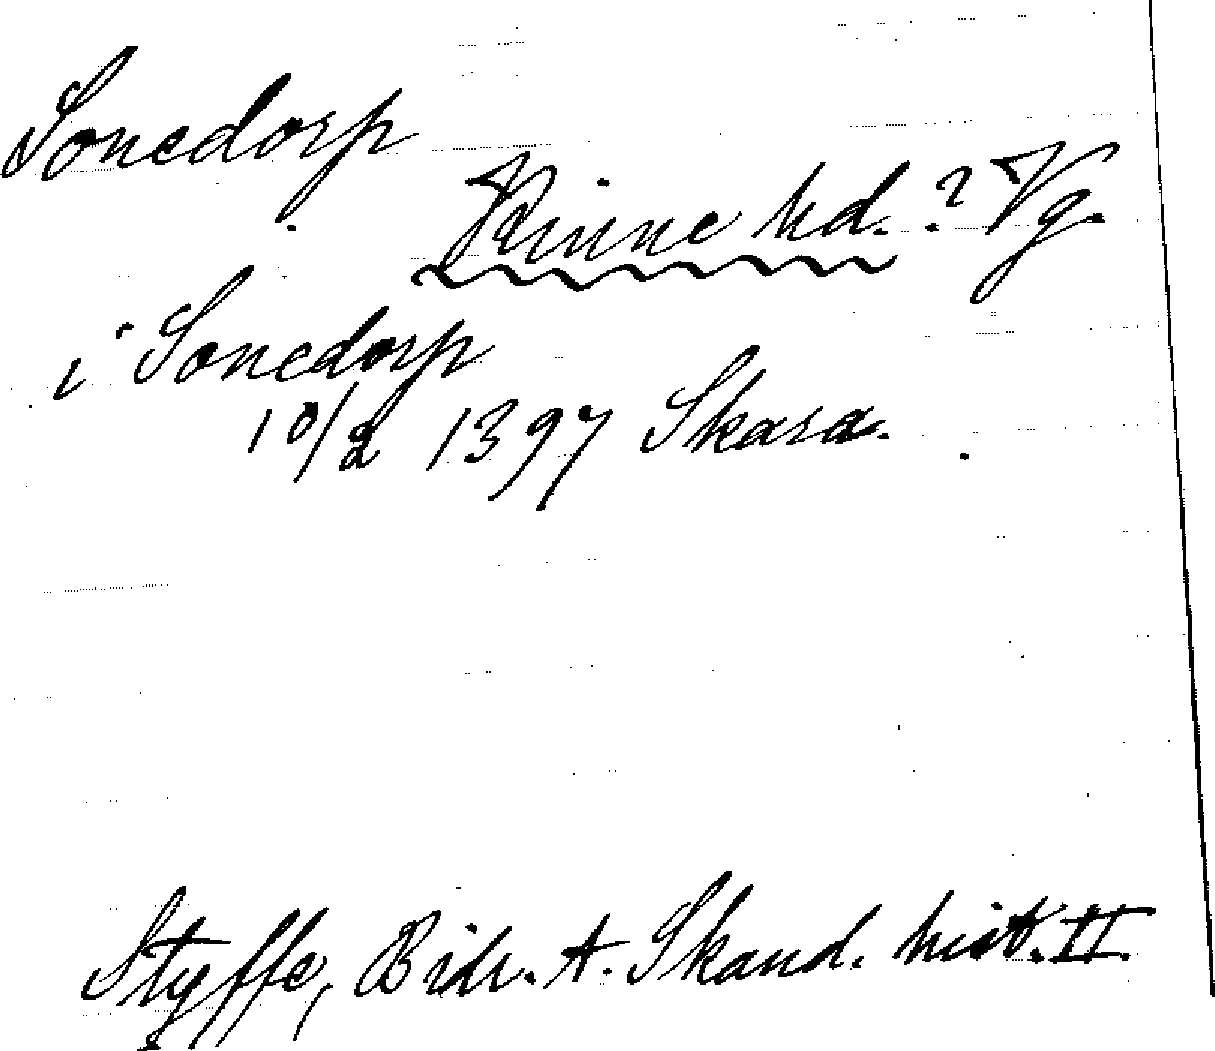 Sonedorp
Kinne hd. ? Vg.
i Sonedorp
10/2 1397 Skara.
Styffe, Bidr. t. Skand. hist. II.